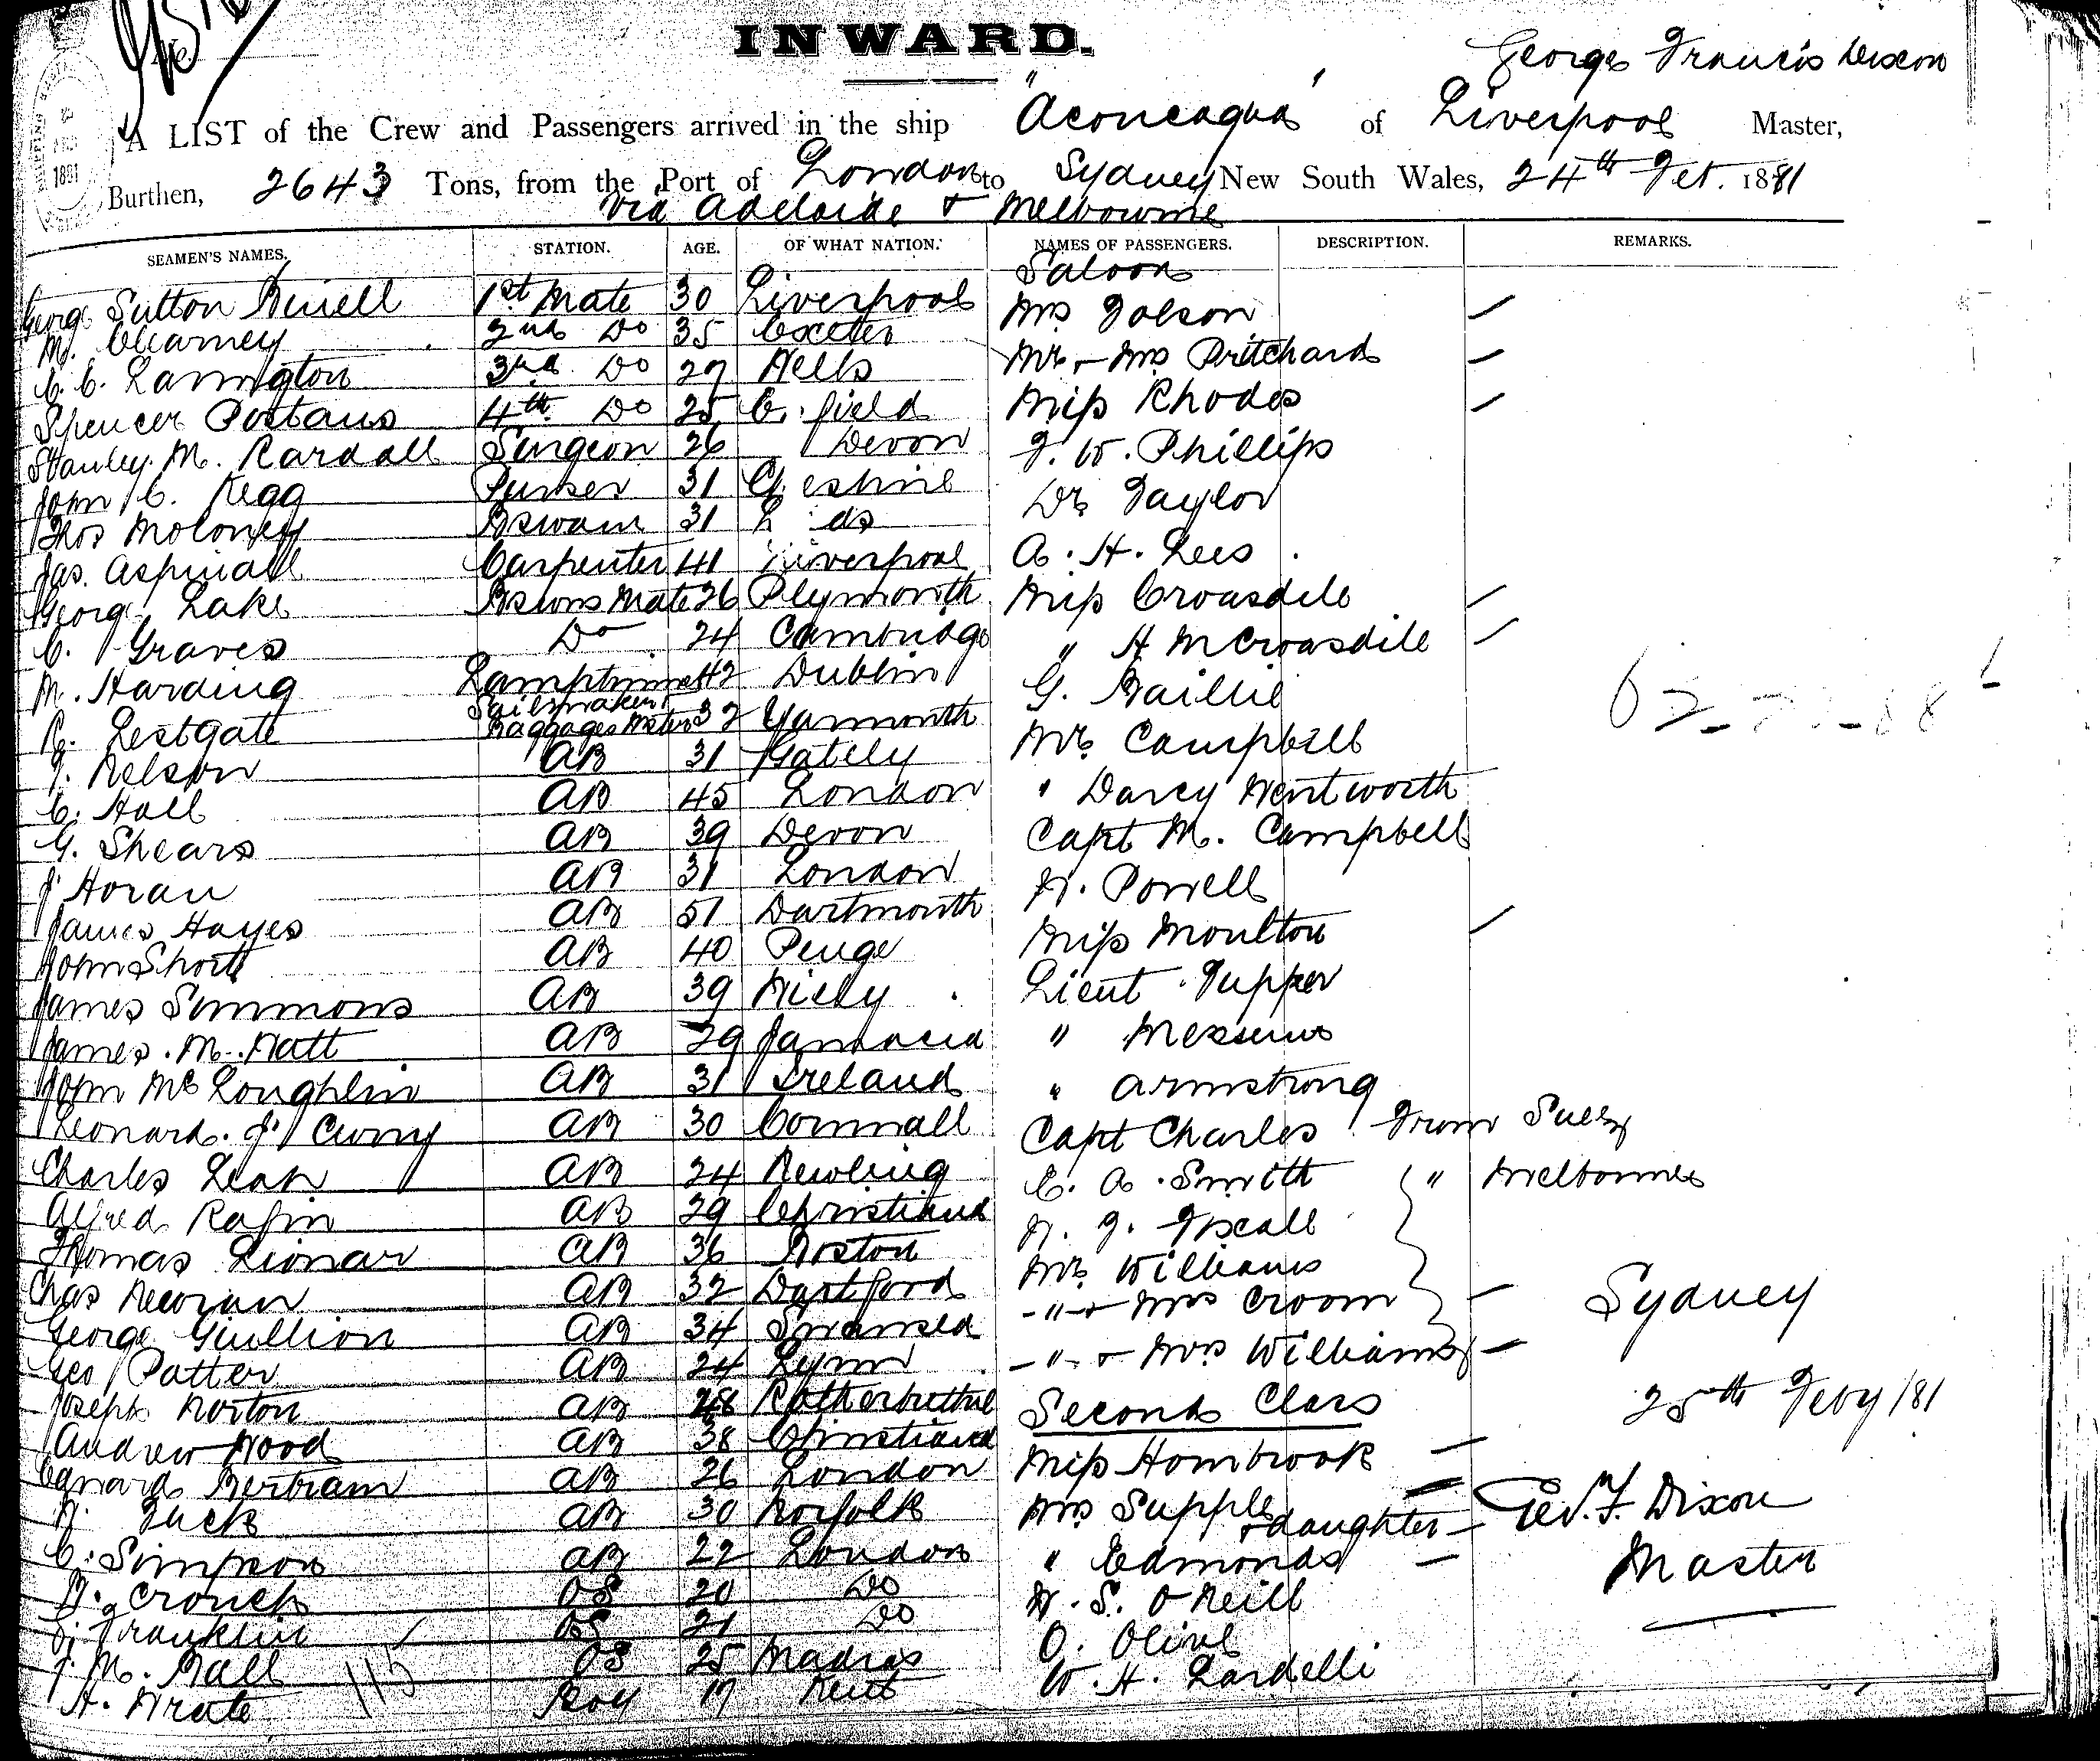 INWARD.
George Francis Dixon
A LIST of the Crew and Passengers arrived in the ship "Aconcagua" of Liverpool Master,
Burthen, 2643 Tons, from the Port of London to Sydney New South Wales, 24th Feb. 1881
via Adelaide & Melbourne
SEAMEN'S NAMES. STATION. AGE. OF WHAT NATION. NAMES OF PASSENGERS. DESCRIPTION. REMARKS.
Saloon
George Sutton 1st Mate 30 Liverpool Mrs
M. 2nd Do 35 Exeter Mr & Mrs Pritchard
C. C. Lannington 3rd Do 27 Wells Miss Rhodes
Spencer Postans 4th Do 25 field F. W. Phillips
Stanley M. Randall Surgeon 26 Devon Dr Taylor
John C. Kegg Purser 31 A. H. Lees
Thos Moloney Bswain 31 Miss Croasdile
Jas. Aspinall Carpenter 41 Liverpool " H M Croasdile
George Lake Bswns Mate 26 Plymouth G. Baillie
C. Graves Do 24 Cambridge Mr Campbell
M. Harding Lamptrimmer 42 Dublin " Darcy Wentworth
R. Lestgate Sailmaker Baggage Master 32 Yarmouth Capt M. Campbell
Nelson AB 31 W. Powell
C. Hall AB 45 London Miss Moulton
G. Shears AB 39 Devon Lieut Tupper
J Horan AB 31 London "
James Hayes AB 51 Dartmouth " Armstrong
John Short AB 40 Penge Capt Charles From Suez
James Simmons AB 39 E. A. Smith " Melbourne
James M. Watt AB 29 Jamacia
John McLoughlin AB 31 Ireland Mr Williams
Leonard J. Curry AB 30 Cornwall -"- & Mrs Croom
Charles Leah AB 24 -"- & Mrs Williams
Alfred AB 29 Christiana Second Class
Thomas AB 36 Boston Miss Hornbrook
Chas AB 32 Dartford Mrs Supple & daughter
George AB 34 Swansea " Edmonds
Geo Patter AB 24 Lynn W. S. O'Neill
Joseph Norton AB 28 O. Olive
Andrew Wood AB 38 Christiana W. H. Lardelli
Edward Bertram AB 26 London
Tuck AB 30 Norfolk
C. Simpson AB 22 London
Crouch OS 20 Do
Franklin OS 21 Do
J. M. Ball OS 25 Madras
H. Wrate Boy 17 Kent
115
Sydney
25th Feby /81
Geo. F. Dixon
Master